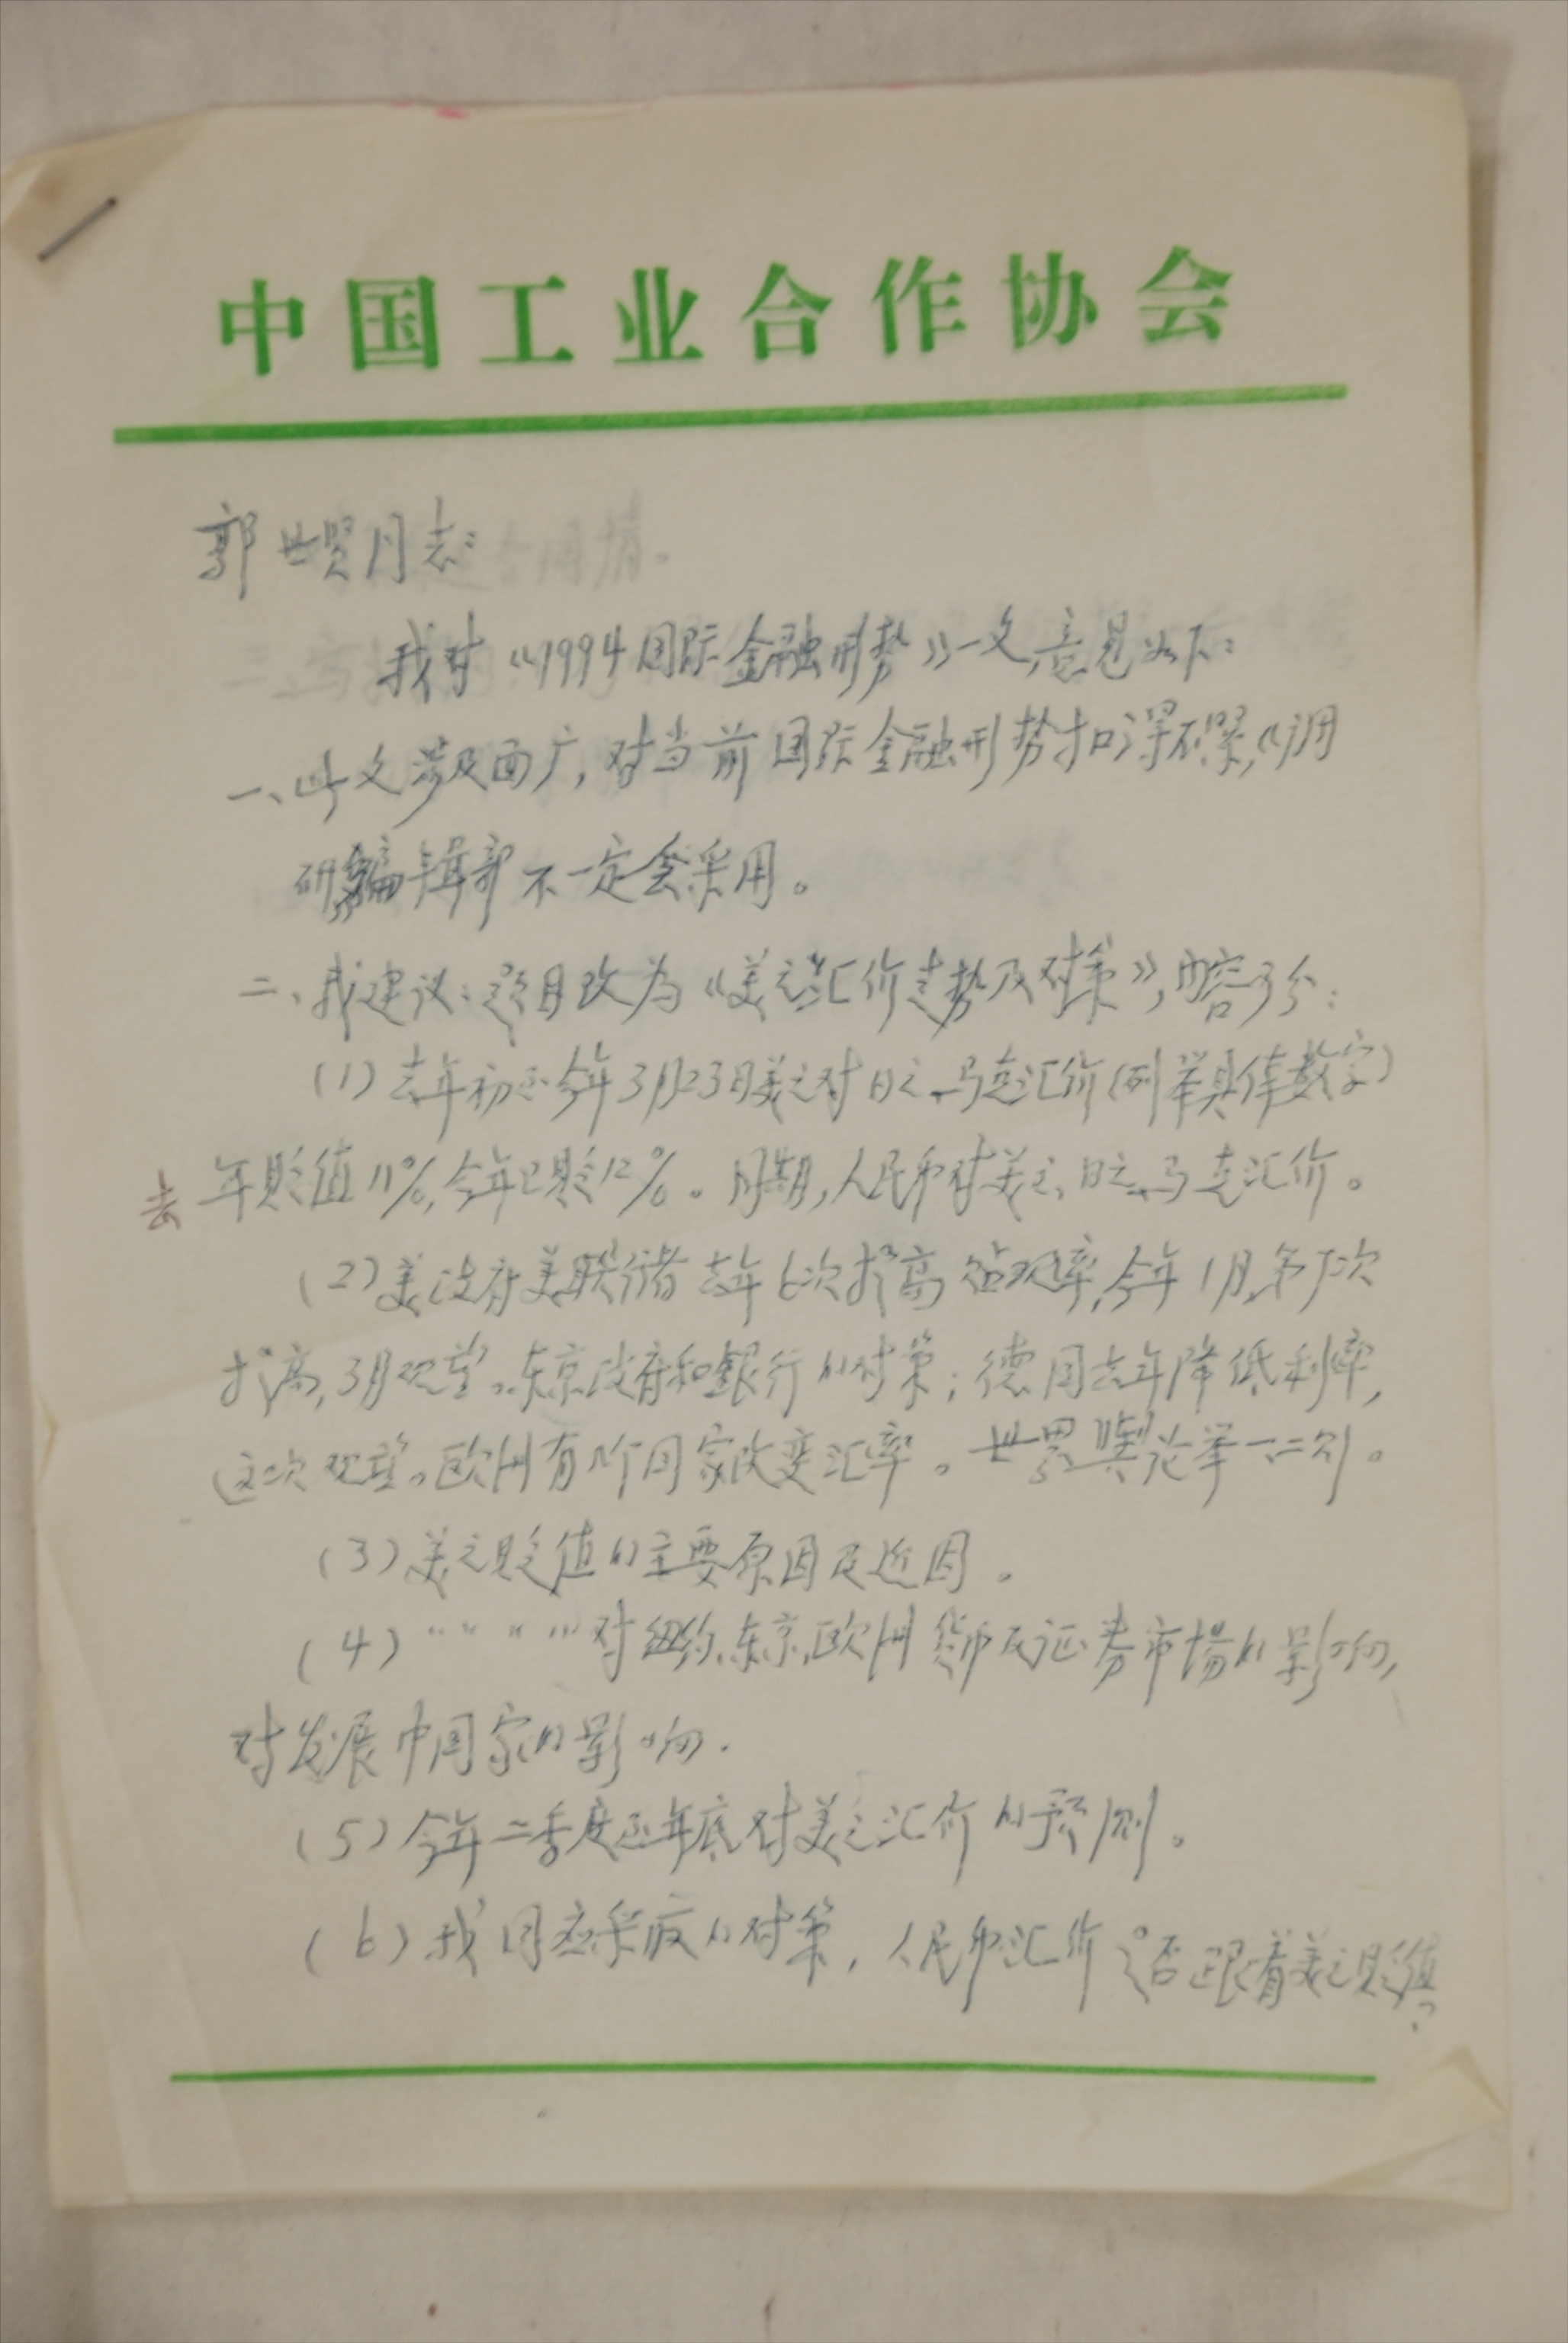 中国工业合作协会
郭世贤同志:
我对《1994国际金融形势》一文,意见如下:
一、此文涉及面广,对当前国际金融形势扣得不紧,《调
研》编辑部不一定会采用。
二、我建议:题目改为《美元汇价走势及对策》,内容可分:
(1)去年初至今年3月23日美元对日元、马克汇价(列举具体数字)
去年贬值11%,今年已贬12%。同期,人民币对美元、日元、马克汇价。
(2)美政府美联储去年6次提高贴现率,今年1月第7次
提高,3月观望。东京政府和银行的对策;德国去年降低利率,
这次观望。欧洲有几个国家改变汇率。世界舆论举一二例。
(3)美元贬值的主要原因及近因。
(4)" " " "对纽约、东京、欧洲货币及证券市场的影响,
对发展中国家的影响.
(5)今年二季度至年底对美元汇价的预测。
(6)我国应采取的对策,人民币汇价是否跟着美元贬值?